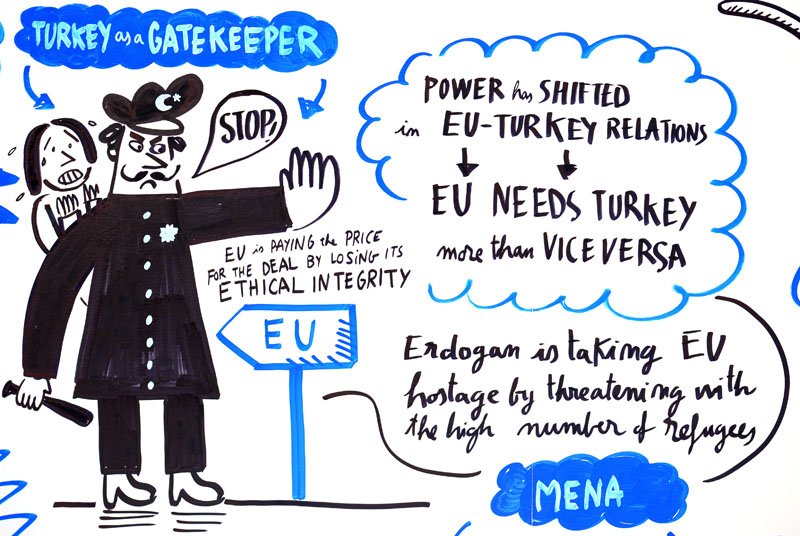 TURKEY as a GATEKEEPER
STOP!
EU is PAYING the PRICE
FOR THE DEAL BY LOSING ITS
ETHICAL INTEGRITY
EU
POWER has SHIFTED
in EU-TURKEY RELATIONS
EU NEEDS TURKEY
more than VICEVERSA
Erdogan is taking EU
hostage by threatening with
the high number of refugees
MENA